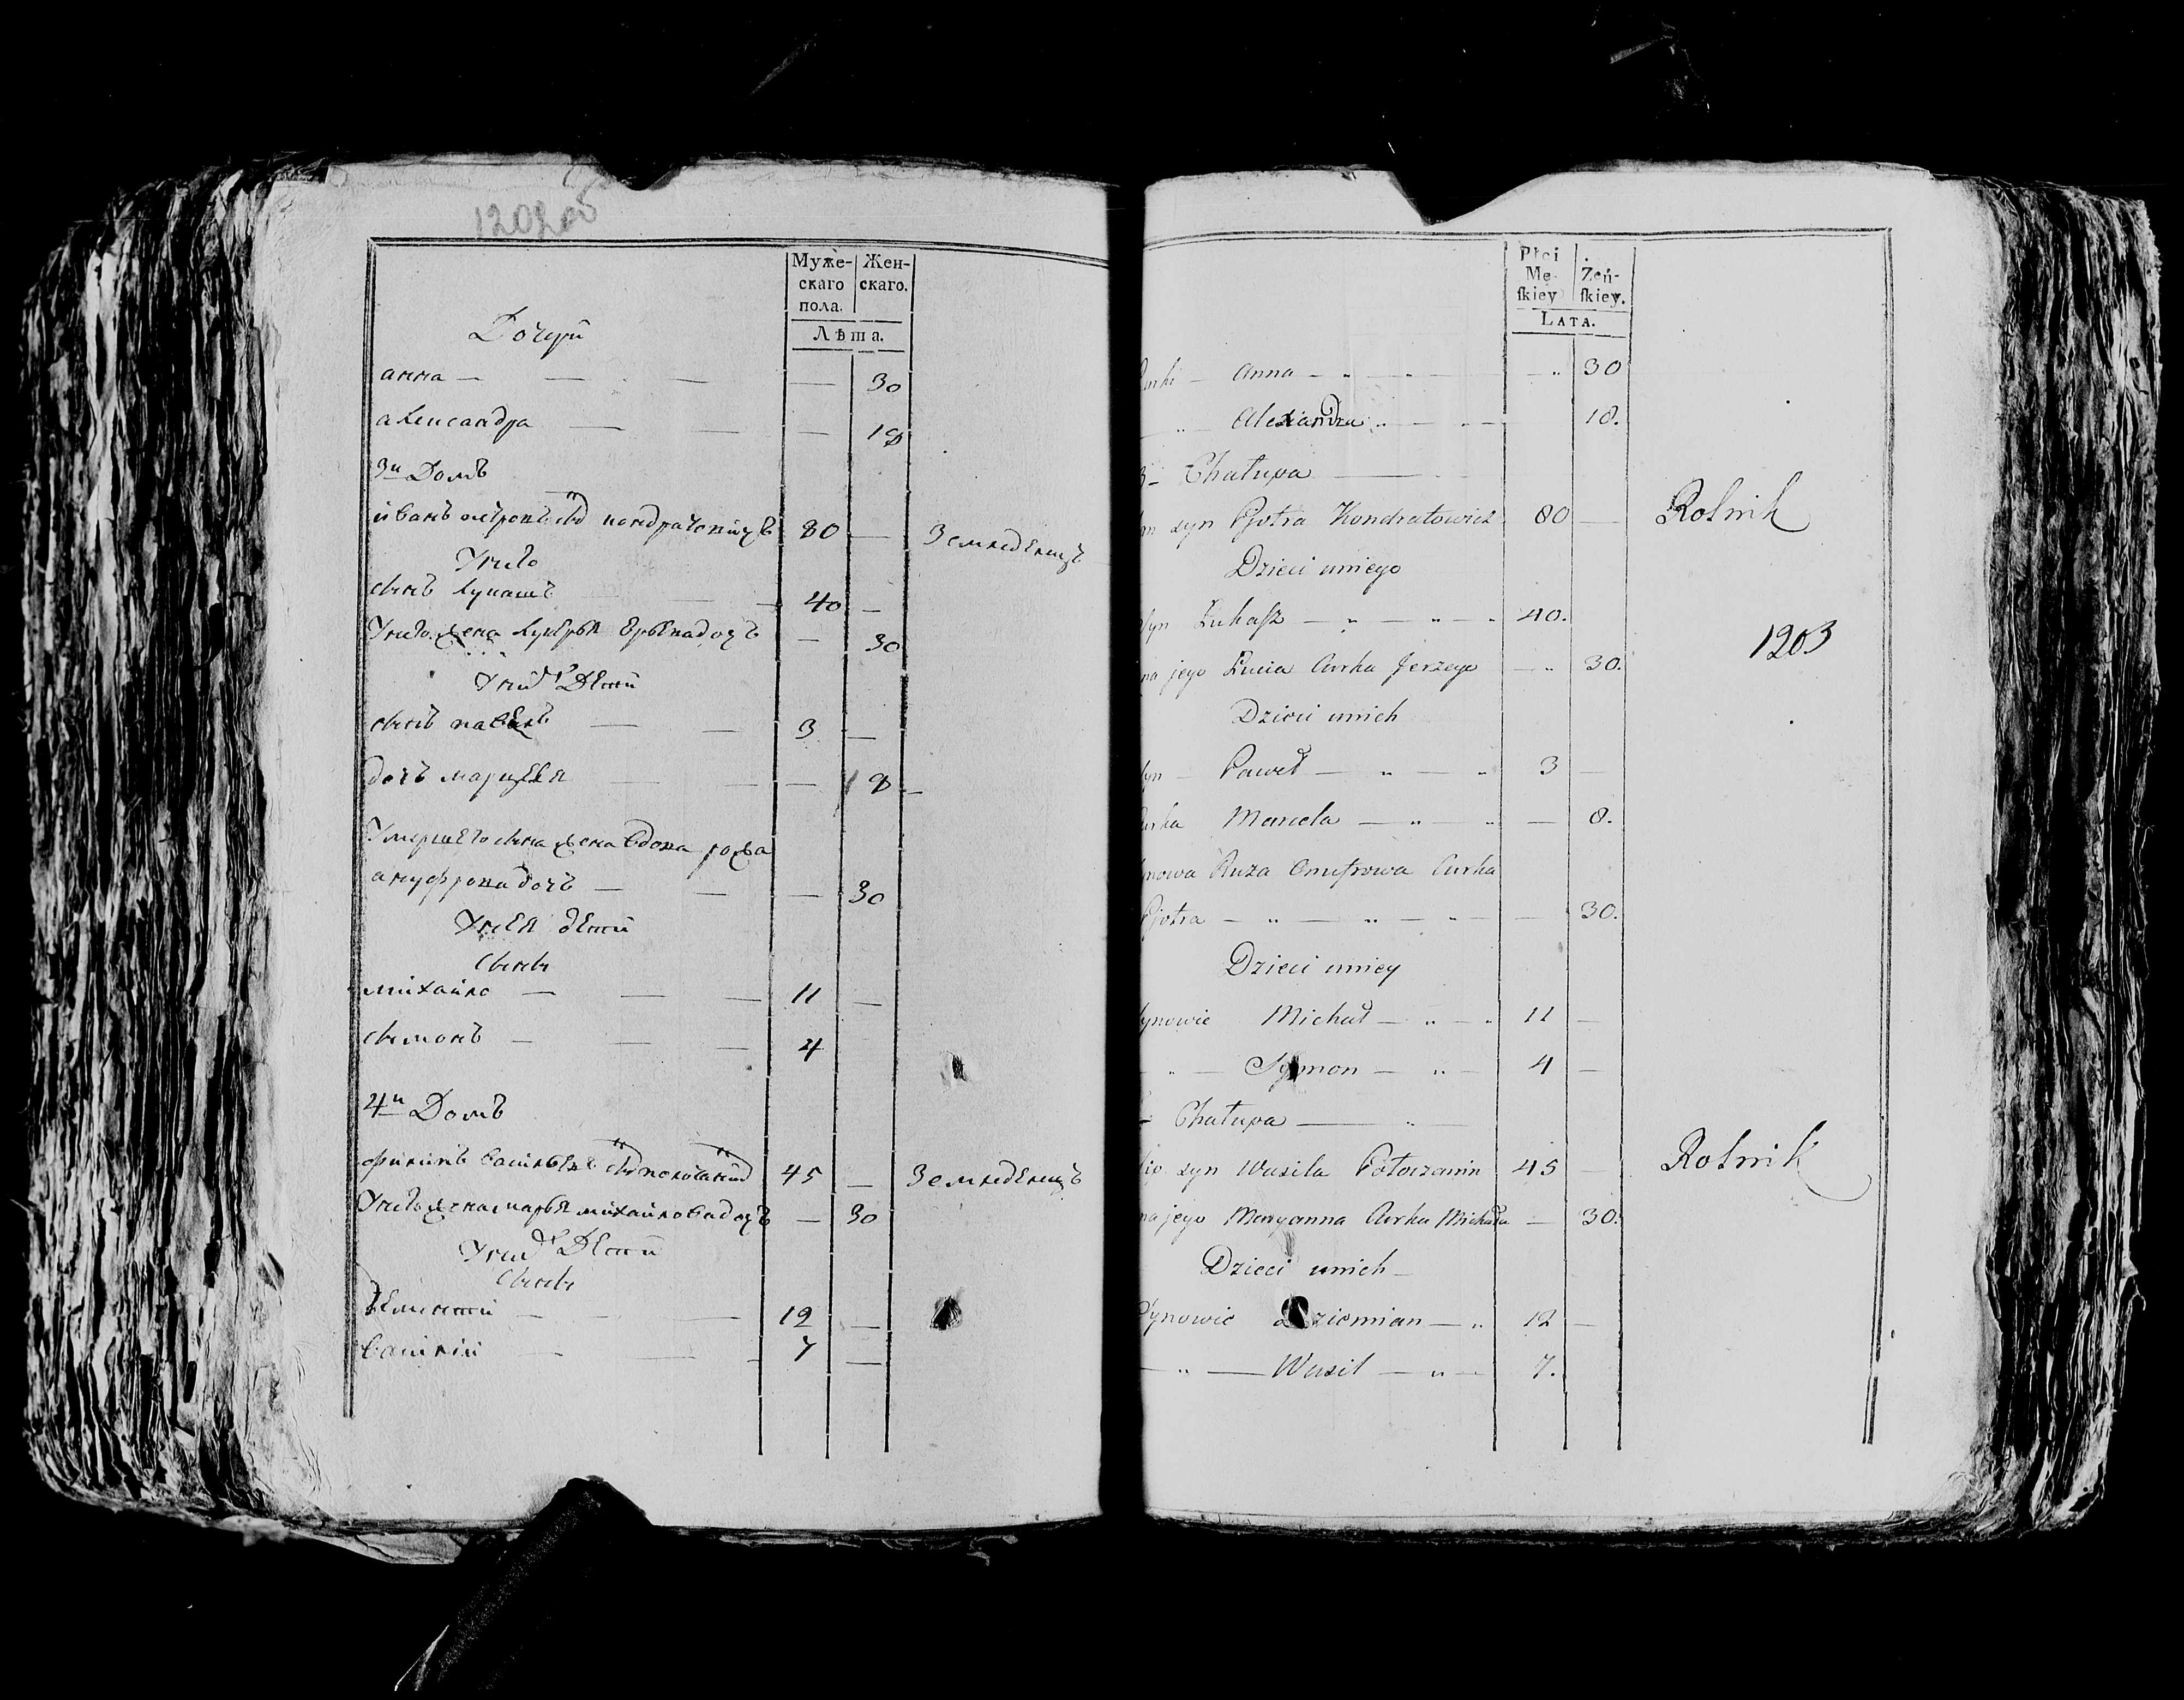 1202 об
Муже-
скаго
пола.
Жен-
скаго.
Лѣта.
Дочери
анна — — — — 30
александра — — — 18
3й Домъ
иванъ петровъ сынъ кондратовичъ 80 — Земледелецъ
Унего
сынъ лукашъ — 40 —
Унего жена лукерья — 30
Уних Дети
сынъ павелъ — — 3 —
дочь марцеля — — — 8 —
Умершего сына жена вдова рожа
ануфрова дочь — — — 30
Унея дети
сыны
михайло — — — 11 —
сымонъ — — — 4
4й Домъ
филипъ васильевъ сынъ полочанин 45 — Земледелецъ
Унего жена марья михайлова дочь — 30
Уних Дети
сыны
демянти — — 12 —
василий — — 7 —
Płci
Mę-
ſkiey
Żeń-
ſkiey.
LATA.
Curki — Anna — „ — „ — — „ 30
„ Alexandra „ — „ — 18.
3 – Chałupa —
syn Pjotra Kondratowicz 80 — Rolnik
Dzieci uniego
Syn Łukaſz — „ — „ — „ 40.
1203
na jego Łucia Curka Jerzego — „ 30.
Dzieci unich
Syn — Paweł — „ — „ 3 —
Curka Marcela — „ — „ — 8.
nowa Ruza Onufrowa Curka
Pjotra — „ — „ — „ — — 30.
Dzieci uniey
Synowie Michał — „ — „ 11 —
— „ — Symon — „ — 4 —
– Chałupa — „ —
lip syn Wasila Połoczanin 45 — Rolnik
na jego Maryanna Curka Michała — 30.
Dzieci unich —
Synowie Dziemian — „ 12 —
— „ — Wasil — „ — 7.